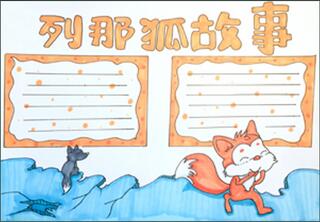 列那狐故事